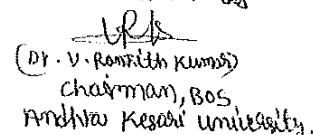 (Dr. V. Ramjith Kumar)
Chairman, BOS
Andhra Kesari University.